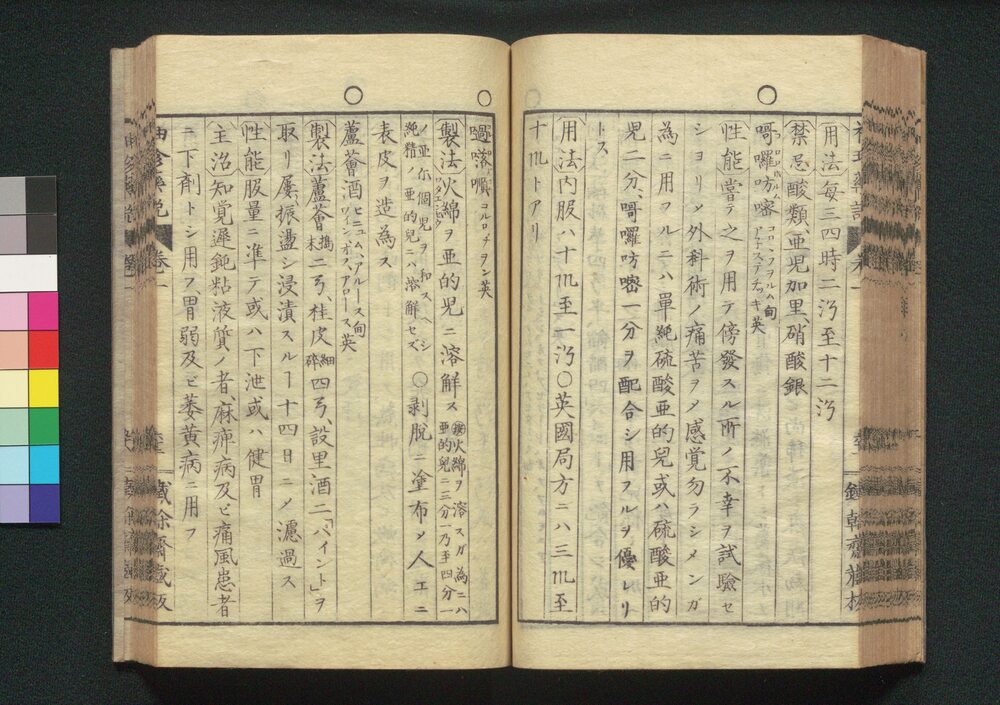 用法 每三四時二㲽至十二㲽
禁忌 酸類、亜児加里、硝酸銀
哥囉吩嘧 コロ、フヲルム 甸 英
性能 嘗テ之ヲ用テ傍發スル所ノ不幸ヲ試驗セ
ショリ〆外科術ノ痛苦ヲ〆感覚勿ラシメンガ
為ニ用フルニハ單純硫酸亜的兒或ハ硫酸亜的
児二分、哥囉吩嘧一分ヲ配合シ用フルヲ優レリ
トス
用法 内服ハ十m至一㲽〇英國局方ニハ三m至
十mトアリ
コルロヂヲン 英
製法 火綿ヲ亜的児ニ溶解ス 火綿ヲ溶スガ為ニハ亜的兒二三分乃至四分一
ノ亜尓個児ヲ和スヘシ純精ノ亜的兒ニハ溶解セズ 〇剥脱ニ塗布〆人工ニ
表皮ヲ造為ス
蘆薈酒 ヒニュム、アルース 甸 ワイン、オス、アロース 英
製法 蘆薈 擣末 二弓、桂皮 細碎 四弓、設里酒二「パイント」ヲ
取リ屢、振盪シ浸漬スルヿ十四日ニ〆濾過ス
性能 服量ニ準テ或ハ下泄或ハ健胃
主治 知覚遲鈍粘液質ノ者、麻痺病及ビ痛風患者
ニ下剤トシ用フ、胃弱及ビ萎黄病ニ用フ